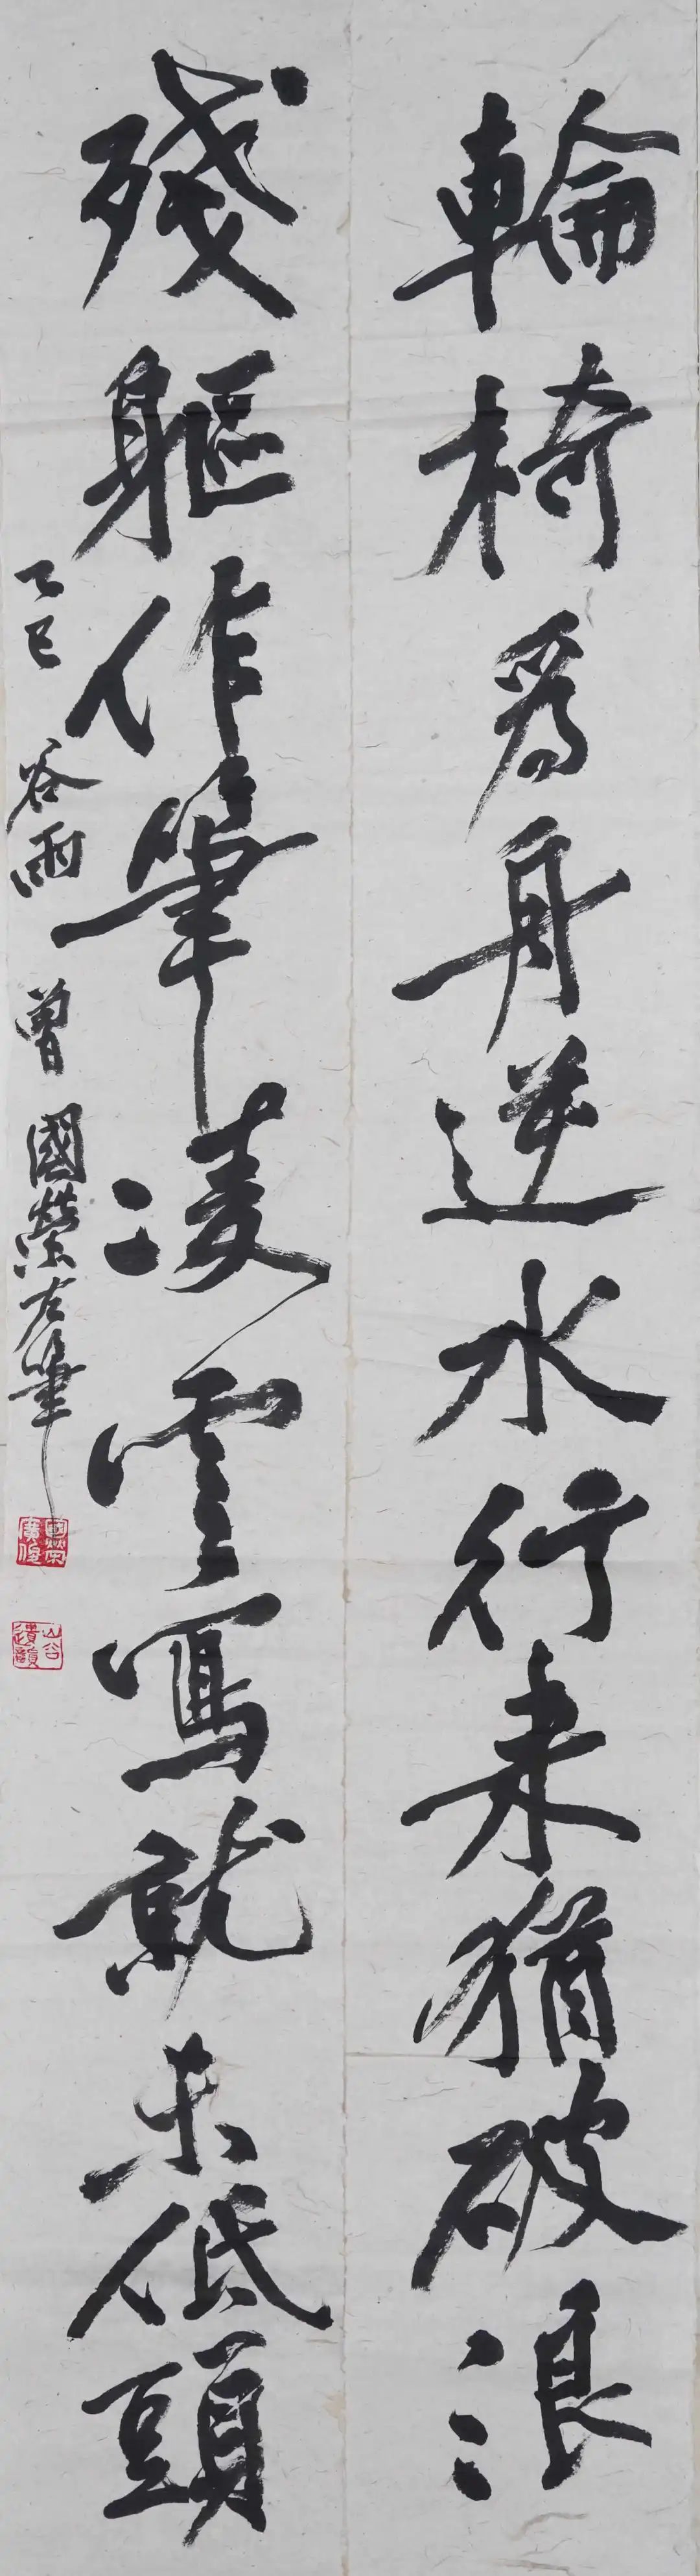 輪椅為身逆水行來猶破浪
殘軀作筆凌雲寫就未低頭
乙巳 谷雨 曾國榮左筆